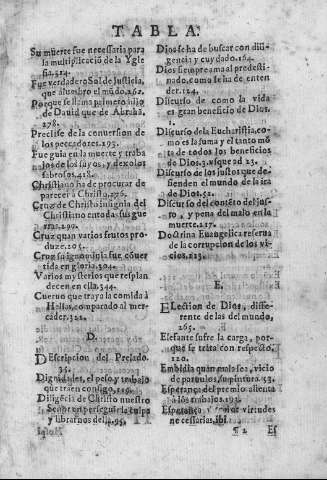 TABLA.
Su muerte fue necessaria para
la multiplicació de la Ygle
sia.314.
Fue verdadero Sol de Iusticia,
que alumbro el mũdo.262.
Porque se llama primero hijo
de Dauid que de Abrahã.
278.
Preciise de la conuersion de
los peccadores.193.
Fue guia en la muerte y traba
jos de los suyos, y dexolos
sabrosos.418.
Christiano ha de procurar de
parecer à Christo.
Cruz de Christo insignia del
Christiano en todas sus gue
rras.299.
Cruz quan varios frutos pro
duze.
Cruz su ignominia fue cõuer
tida en gloria.304.
Varios mysterios que resplan
decen en ella.344.
Cueruo que traya la comida à
Helias, comparado al mer-
cader.321.
D.
Descripcion del Perlado.
35.
Dignidades, el peso y trabajo
que traen consigo.
Diligẽcia de Christo nuestro
Señor en perseguir la culpa
y librarnos della.95.
Dios se ha de buscar con dili
gencia y cuydado.164.
Dios siempre ama al predesti-
nado, como se ha de enten
der.124.
Discurso de como la vida
es gran beneficio de Dios.
1.
Discurso de la Eucharistia, co-
mo es la suma y el tanto mõ
te de todos los beneficios
de Dios.3.vsque ad 23.
Discurso de los justos que de-
fienden el mundo de la ira
de Dios.52.
Discurso del contẽto del jus-
to, y pena del malo en la
muerte.217.
Doctrina Euangelica reserua
de la corrupcion de los vi-
cios.213.
E.
ELeccion de Dios, diffe-
rente de las del mundo,
265.
Elefante sufre la carga, por-
que se trata con respecto.
120.
Embidia quan mala sea, vicio
de paruulos, su pintura.33.
Esperança del premio alienta
à los trabajos.193.
Esperança virtudes
necessarias.ibi.
¶ 2 Es